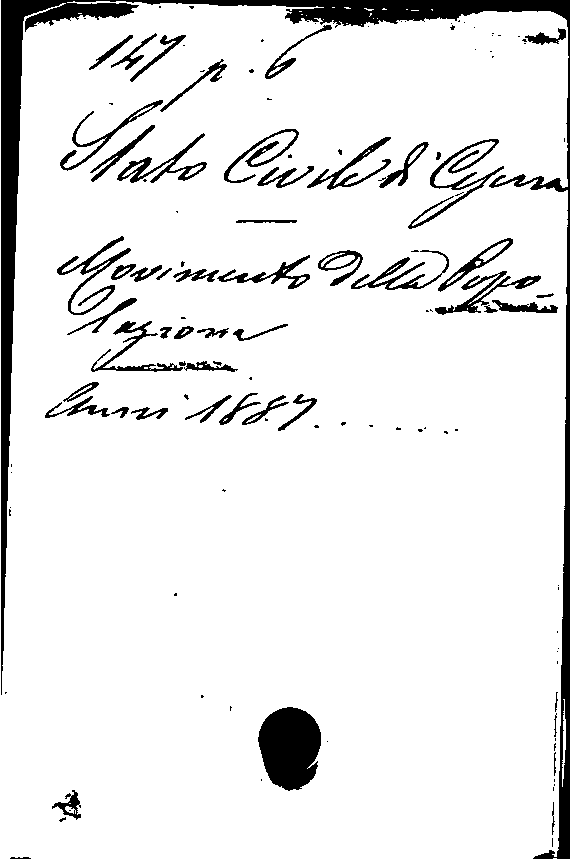 147 p. 6
Stato Civile di
Movimento della Popo-
lazione
Anni 1887.......